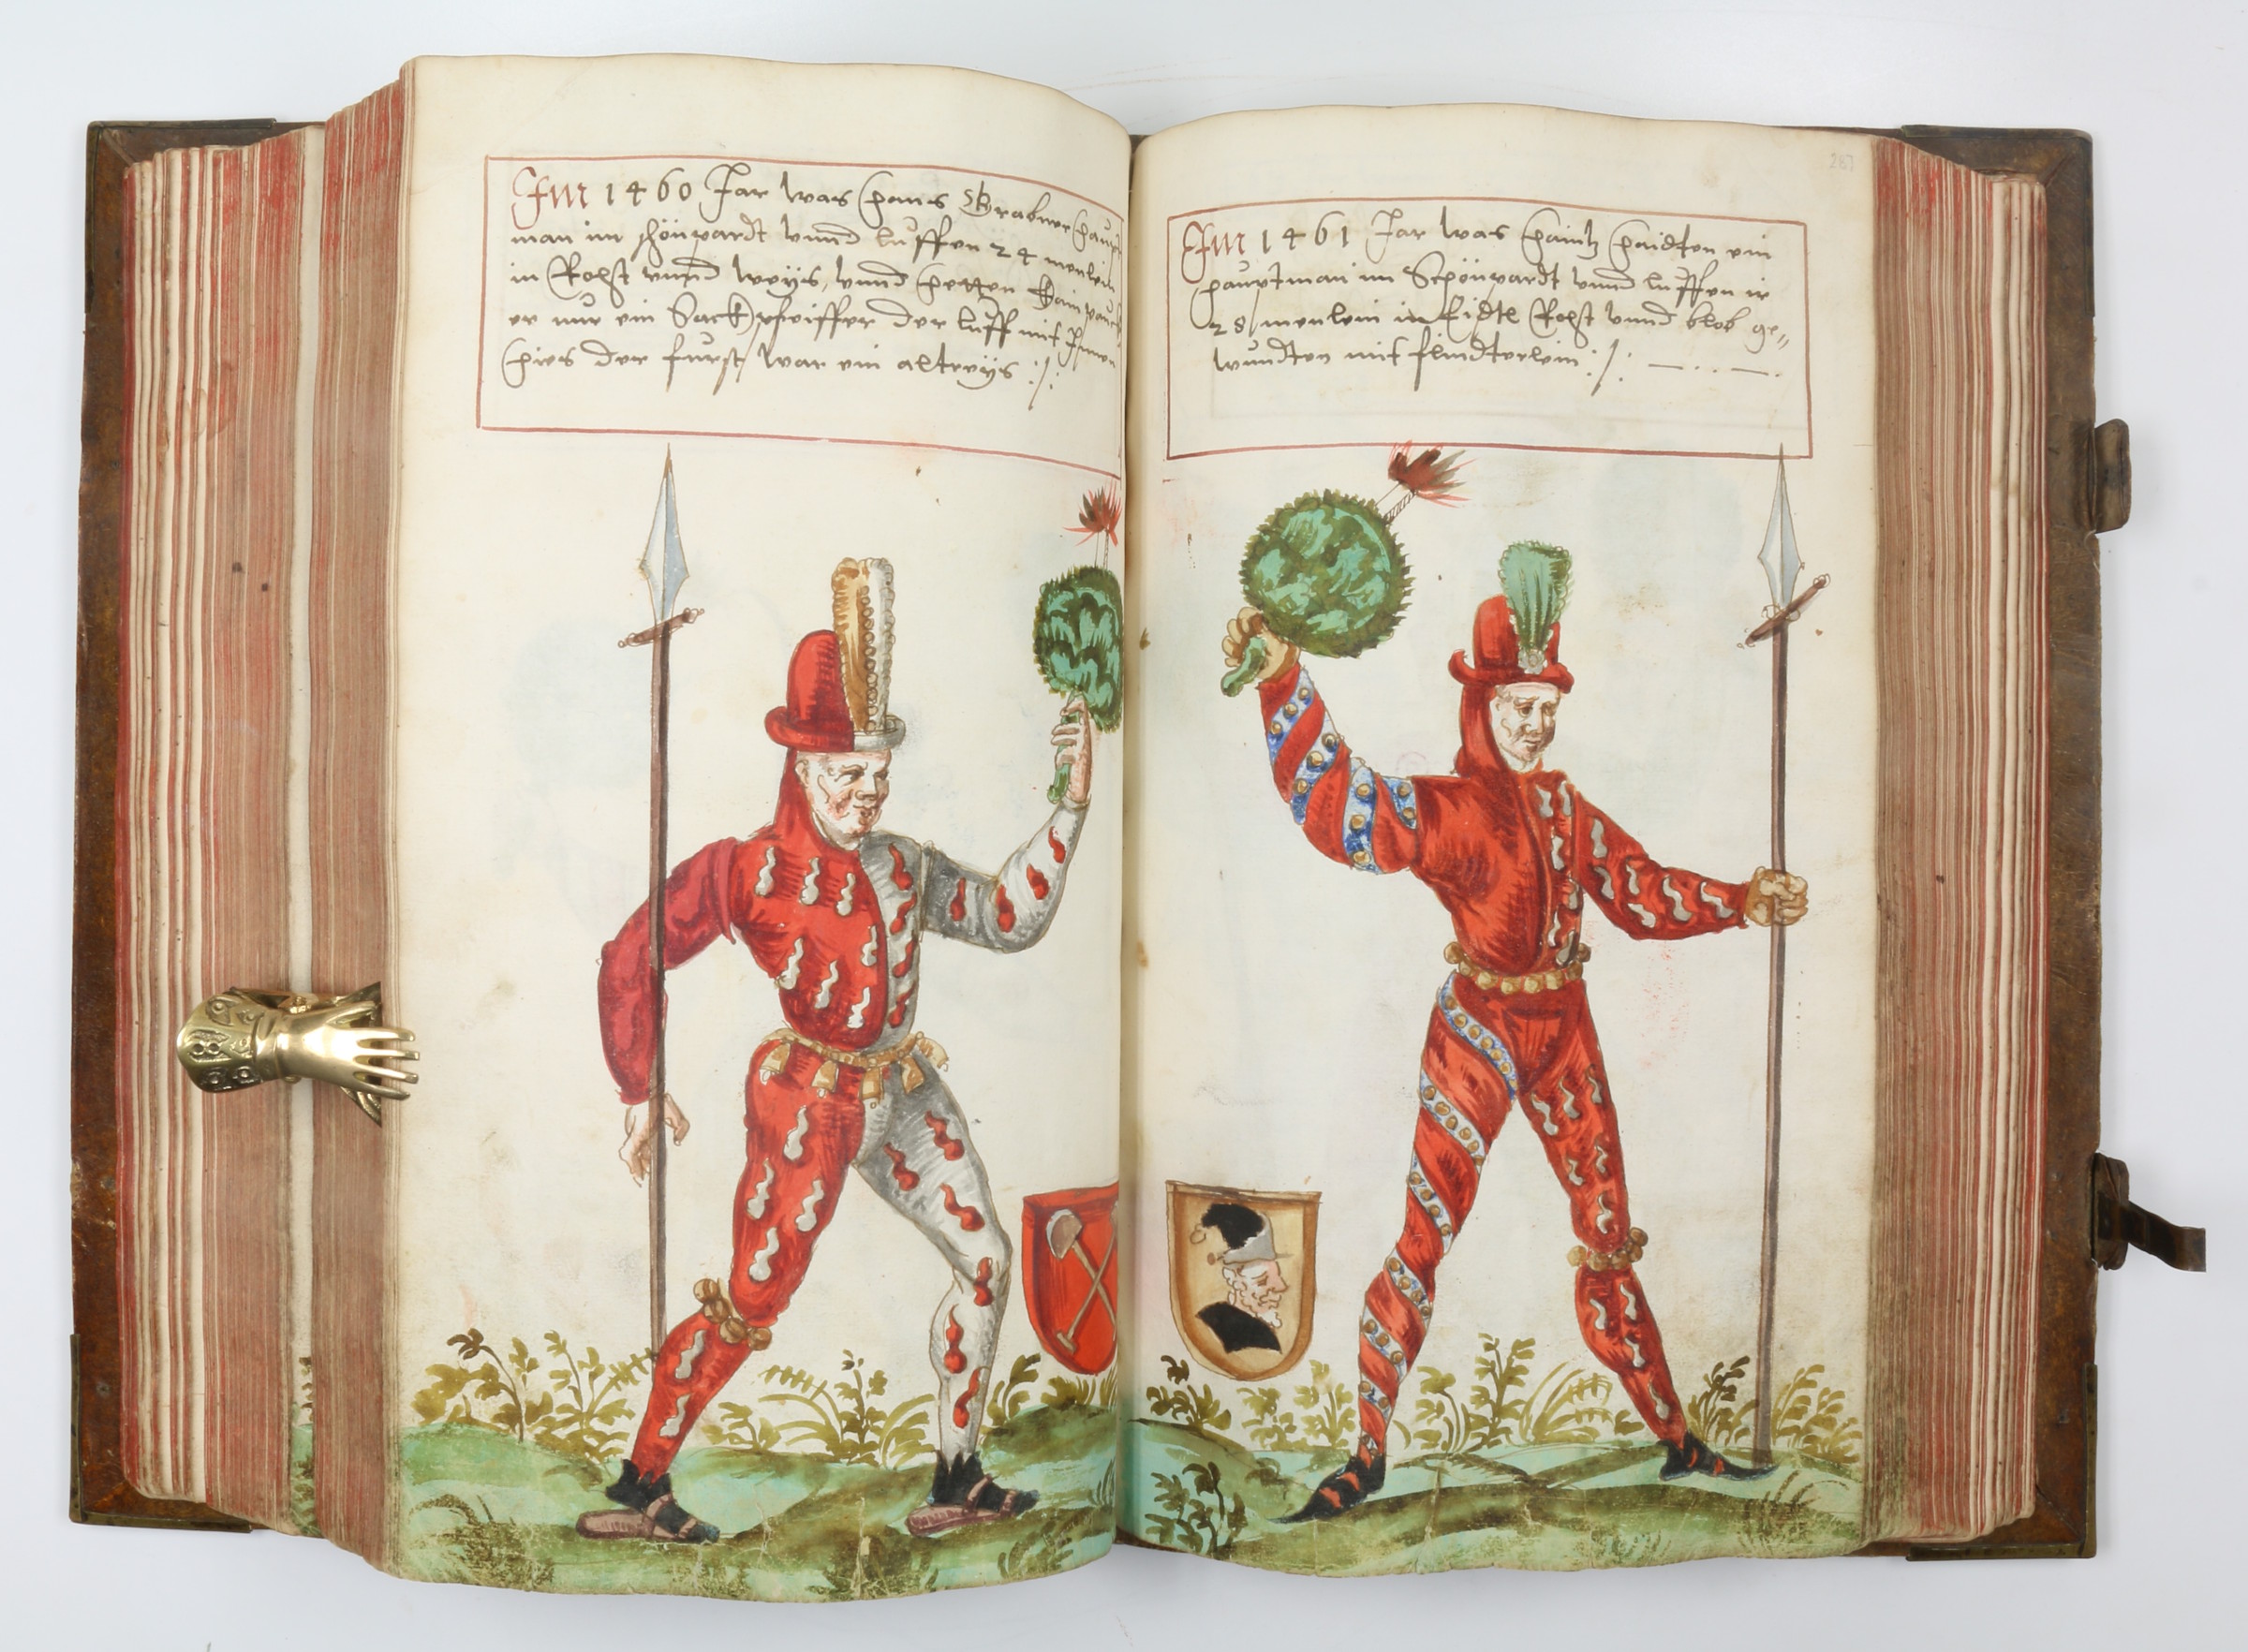 Im 1460 Jar was Hans Grabner Haupt
man im schönpardt vnnd luffen 24 menlein
in Rohtt vnnd weijs, vnnd hetten kain pauck
er nur ein Sackpfeiffer der luff mit Jnnen
hies der furst, war ein altreijs :/:
287
Im 1461 Jar was Haintz Haidten ein
hauptman im Schönpardt vnnd luffen ir
28 menlein in Rohtt vnnd blob ge„
wundten mit flindterlein :/: